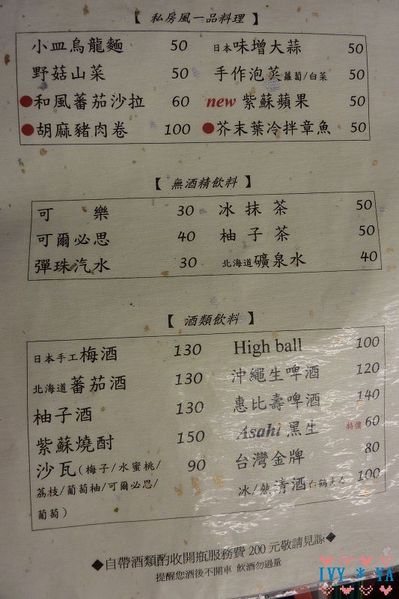 【 私房風一品料理 】
小皿烏龍麵 50 日本味增大蒜 50
野菇山菜 50 手作泡菜 蘿蔔/白菜 50
●和風蕃茄沙拉 60 new 紫蘇蘋果 50
●胡麻豬肉卷 100 ●芥末葉冷拌章魚 50
【 無酒精飲料 】
可樂 30 冰抹茶 50
可爾必思 40 柚子茶 50
彈珠汽水 30 北海道礦泉水 40
【 酒類飲料 】
日本手工梅酒 130 High ball 100
北海道蕃茄酒 130 沖繩生啤酒 120
柚子酒 130 惠比壽啤酒 140
紫蘇燒酎 150 Asahi 黑生 特價 60
沙瓦(梅子/水蜜桃/ 90 台灣金牌 80
荔枝/葡萄柚/可爾必思/ 冰/熱清酒 100
葡萄)
◆自帶酒類酌收開瓶服務費 200 元敬請見諒◆
提醒您酒後不開車 飲酒勿過量
IVY * YA